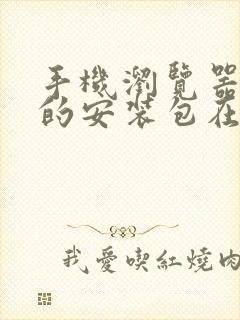 手機瀏覽器
的安裝包在
我愛喫紅燒肉